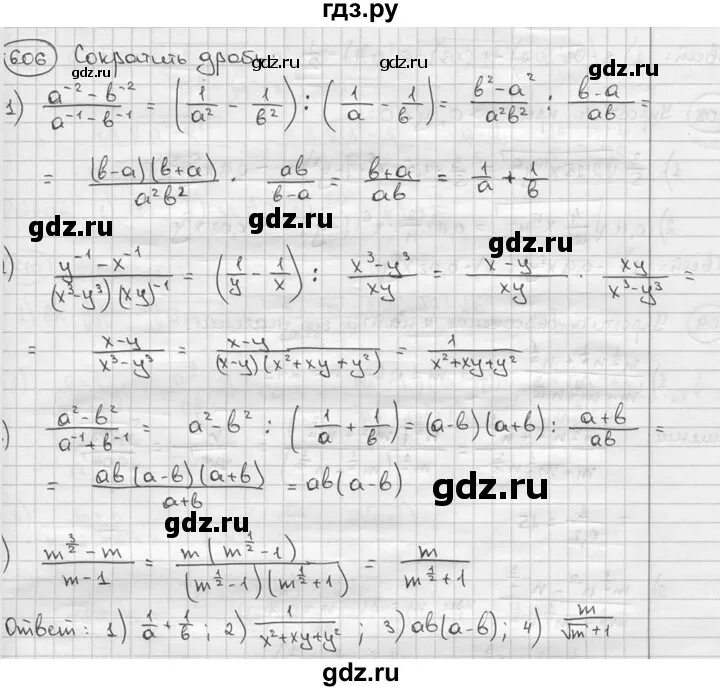 гдз.ру
606 Сократить дробь
gdz.ru gdz.ru
1) (a⁻² - b⁻²)/(a⁻¹ - b⁻¹) = (1/a² - 1/b²) : (1/a - 1/b) = (b² - a²)/(a²b²) : (b-a)/(ab) =
= ((b-a)(b+a))/(a²b²) · ab/(b-a) = (b+a)/(ab) = 1/a + 1/b
gdz.ru gdz.ru
gdz.ru gdz.ru
) (y⁻¹ - x⁻¹)/((x³-y³)(xy)⁻¹) = (1/y - 1/x) : (x³-y³)/(xy) = (x-y)/(xy) · (xy)/(x³-y³) =
= (x-y)/(x³-y³) = (x-y)/((x-y)(x²+xy+y²)) = 1/(x²+xy+y²)
gdz.ru gdz.ru
) (a²-b²)/(a⁻¹+b⁻¹) = a²-b² : (1/a + 1/b) = (a-b)(a+b) : (a+b)/(ab) =
= (ab(a-b)(a+b))/(a+b) = ab(a-b)
gdz.ru
gdz.ru
) (m^(3/2) - m)/(m-1) = (m(m^(1/2) - 1))/((m^(1/2) - 1)(m^(1/2) + 1)) = m/(m^(1/2) + 1)
gdz.ru
Ответ: 1) 1/a + 1/b; 2) 1/(x²+xy+y²); 3) ab(a-b); 4) m/(√m + 1)
gdz.ru
gdz.ru